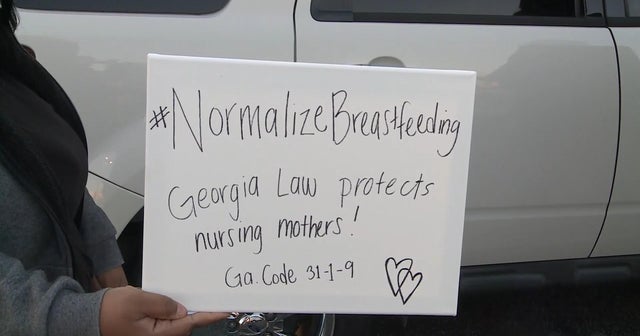 #NormalizeBreastfeeding
Georgia Law protects
nursing mothers!
Ga. Code 31-1-9